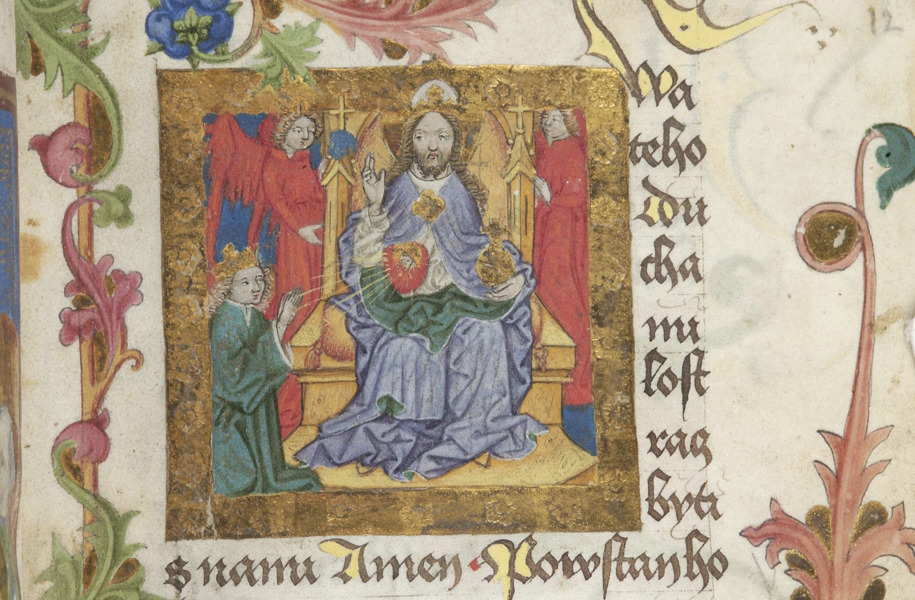 12
Wa
teho
Du
cha
mi
lost
byti
s nami Amen · Powstanho